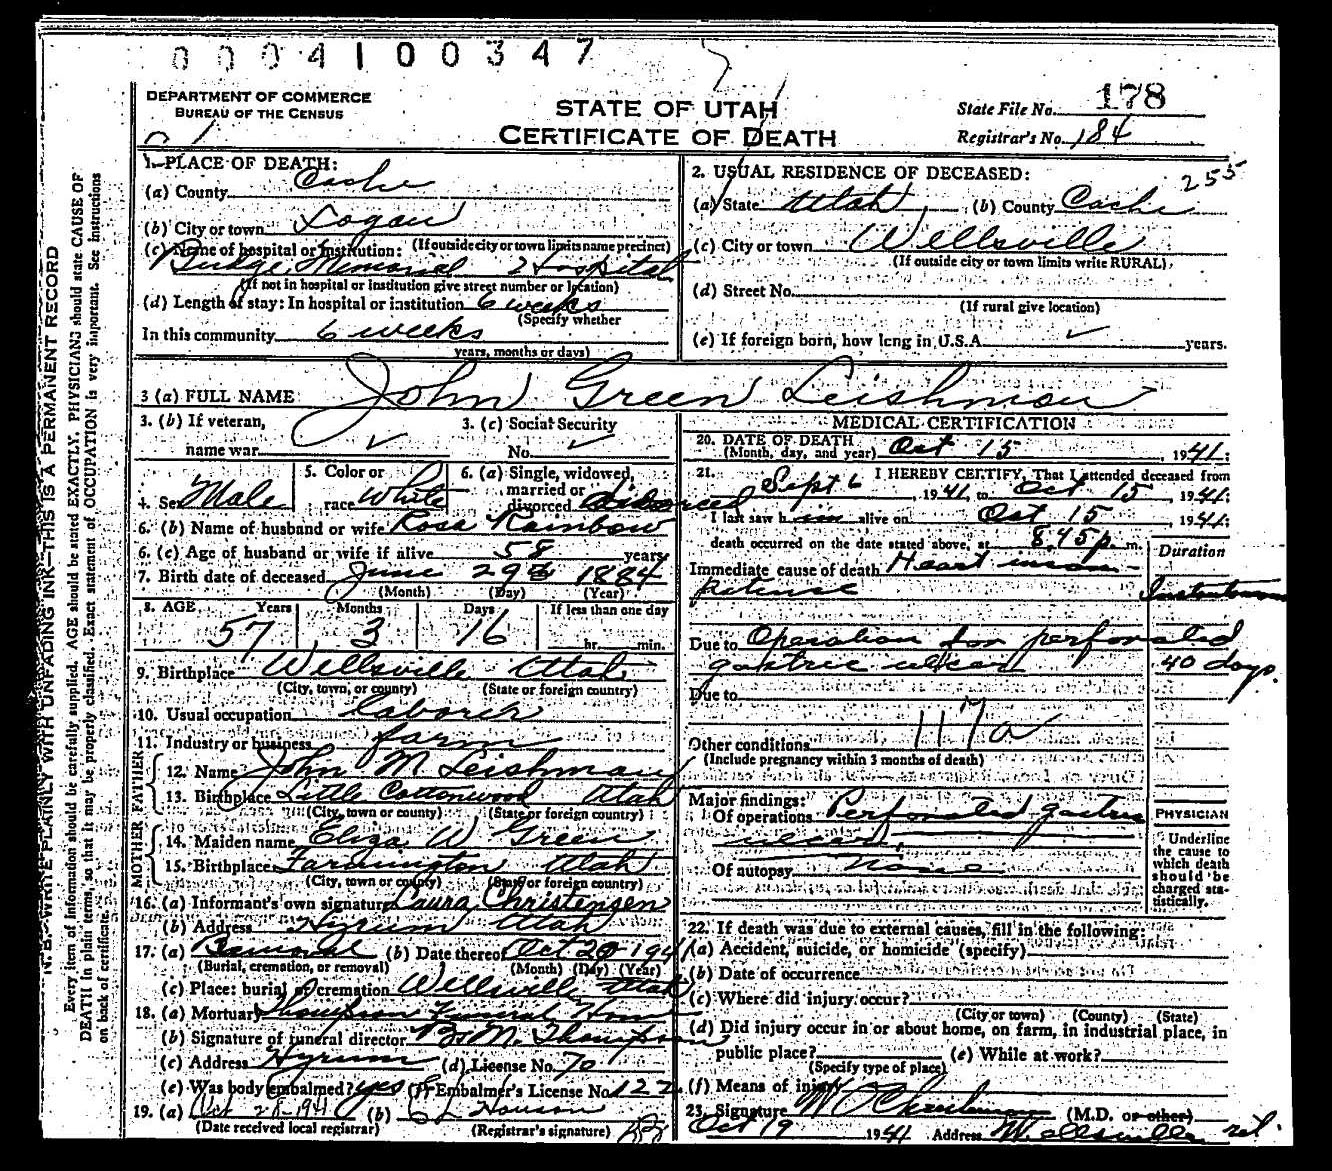 0004100347
DEPARTMENT OF COMMERCE
BUREAU OF THE CENSUS
STATE OF UTAH
CERTIFICATE OF DEATH
State File No. 178
Registrar's No. 184
1. PLACE OF DEATH:
(a) County Cache
(b) City or town Logan
(If outside city or town limits name precinct)
(c) Name of hospital or institution:
Budge Memorial Hospital
(If not in hospital or institution give street number or location)
(d) Length of stay: In hospital or institution 6 weeks
(Specify whether
In this community 6 weeks
years, months or days)
2. USUAL RESIDENCE OF DECEASED: 255
(a) State Utah (b) County Cache
(c) City or town Wellsville
(If outside city or town limits write RURAL)
(d) Street No.
(If rural give location)
(e) If foreign born, how long in U.S.A. ✓ years.
3 (a) FULL NAME John Green Leishman
3. (b) If veteran,
name war ✓
3. (c) Social Security
No. ✓
4. Sex Male
5. Color or
race White
6. (a) Single, widowed,
married or
divorced divorced
6. (b) Name of husband or wife Rosa Rainbow
6. (c) Age of husband or wife if alive 58 years
7. Birth date of deceased June 29 1884
(Month) (Day) (Year)
8. AGE Years Months Days If less than one day
57 3 16 hr. min.
9. Birthplace Wellsville Utah
(City, town, or county) (State or foreign country)
10. Usual occupation laborer
11. Industry or business farm
FATHER
12. Name John M Leishman
13. Birthplace Little Cottonwood Utah
(City, town or county) (State or foreign country)
MOTHER
14. Maiden name Eliza W Green
15. Birthplace Farmington Utah
(City, town or county) (State or foreign country)
16. (a) Informant's own signature Laura Christensen
(b) Address Hyrum Utah
17. (a) Removal (b) Date thereof Oct 20 1941
(Burial, cremation, or removal) (Month) (Day) (Year)
(c) Place: burial or cremation Wellsville Utah
18. (a) Mortuary Thompson Funeral Home
(b) Signature of funeral director Thompson
(c) Address Hyrum (d) License No. 70
(e) Was body embalmed? yes (f) Embalmer's License No. 122
19. (a) Oct 28-1941 (b)
(Date received local registrar) (Registrar's signature)
MEDICAL CERTIFICATION
20. DATE OF DEATH
(Month, day, and year) Oct 15, 1941.
21. I HEREBY CERTIFY, That I attended deceased from
Sept 6, 1941, to Oct 15 1941.
I last saw him alive on Oct 15, 1941;
death occurred on the date stated above, at 8.45 p. m.
Duration
Immediate cause of death Heart incom-
petence
Due to Operation for perforated
gastric ulcer 40 days.
Due to
117a
Other conditions
(Include pregnancy within 3 months of death)
Major findings:
Of operations Perforated gastric
ulcer
Of autopsy none
PHYSICIAN
Underline
the cause to
which death
should be
charged sta-
tistically.
22. If death was due to external causes, fill in the following:
(a) Accident, suicide, or homicide (specify)
(b) Date of occurrence
(c) Where did injury occur?
(City or town) (County) (State)
(d) Did injury occur in or about home, on farm, in industrial place, in
public place? (e) While at work?
(Specify type of place)
(f) Means of injury
23. Signature (M.D. or other)
Oct 19 1941 Address Wellsville
N. B.—WRITE PLAINLY WITH UNFADING INK—THIS IS A PERMANENT RECORD
Every item of information should be carefully supplied. AGE should be stated EXACTLY. PHYSICIANS should state CAUSE OF
DEATH in plain terms, so that it may be properly classified. Exact statement of OCCUPATION is very important. See instructions
on back of certificate.